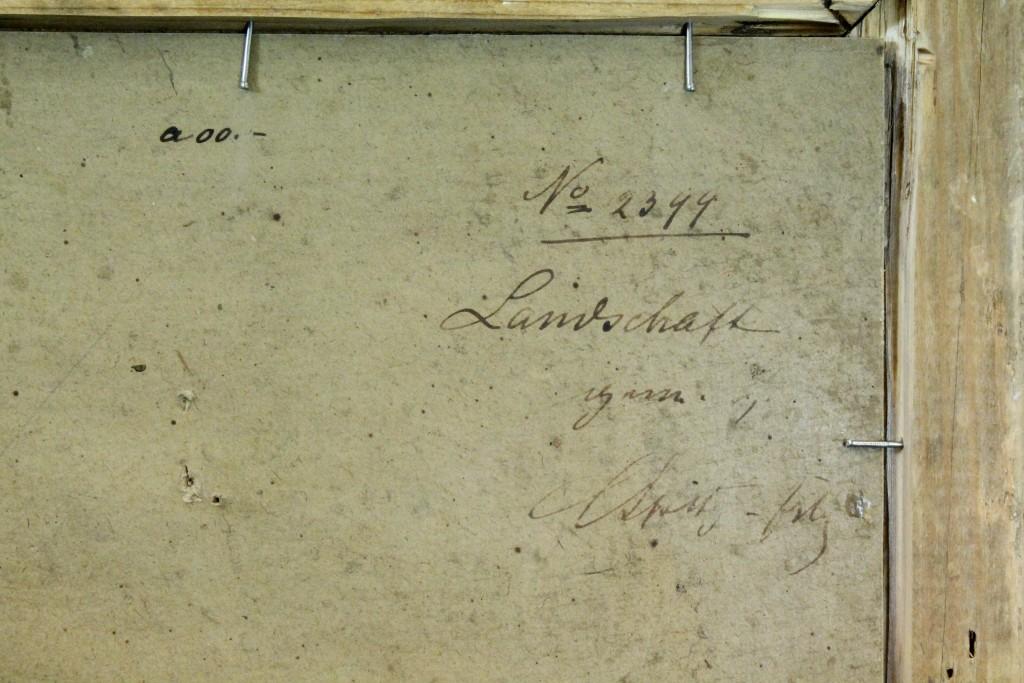 a 00.-
No 2399
Landschaft
gem.